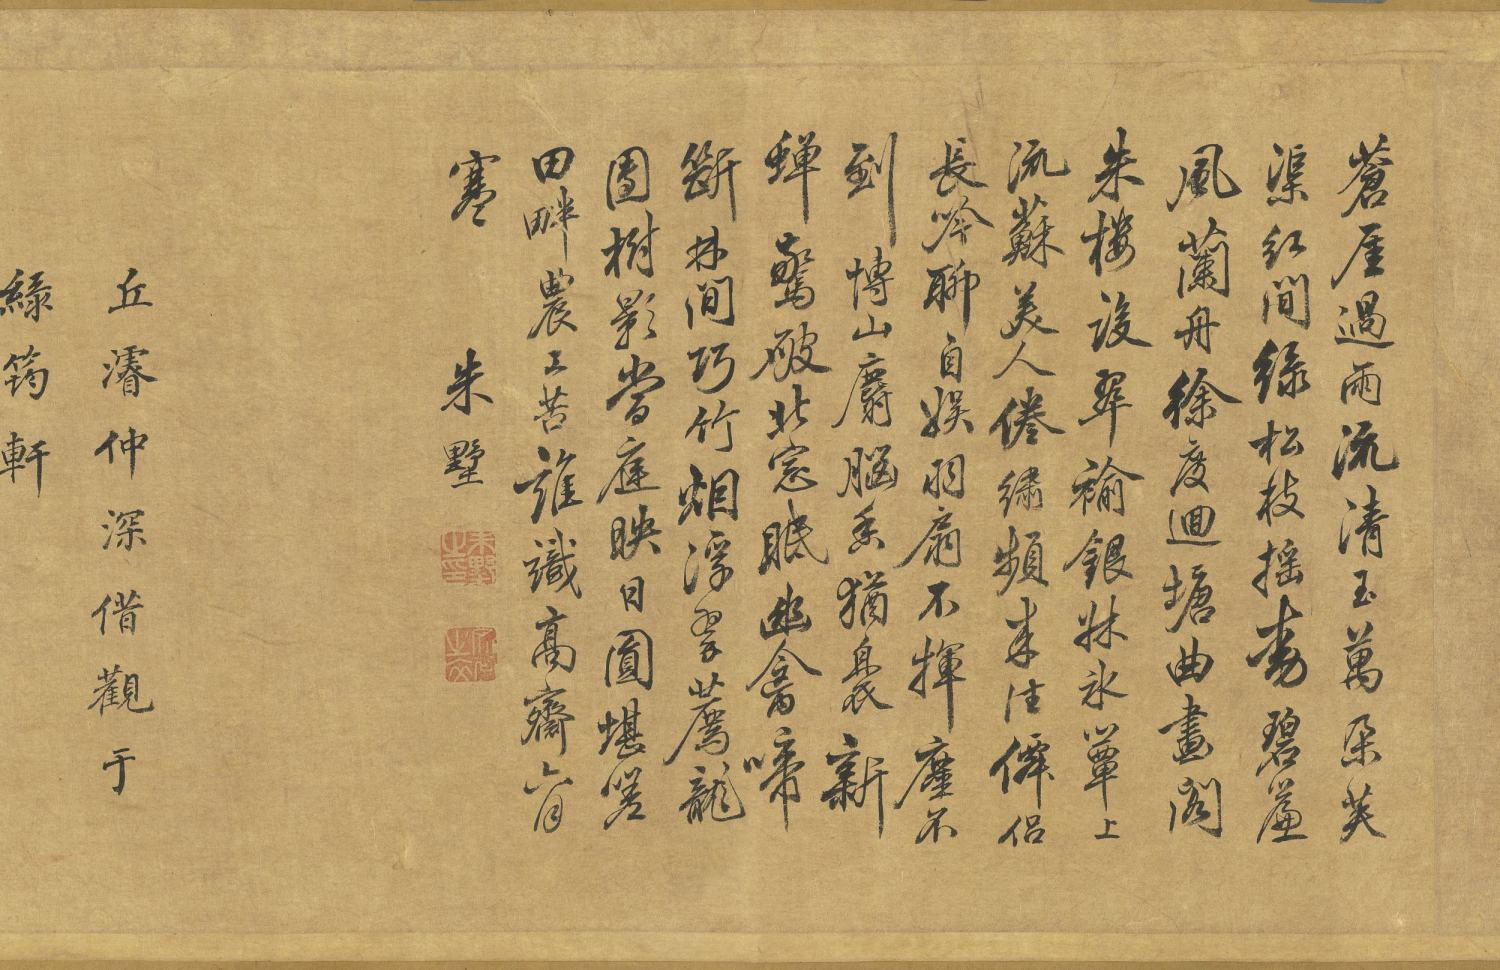 蒼崖過雨流清玉萬朵芙
渠紅間綠松枝搖動碧簾
風蘭舟徐度迴塘曲畫閣
朱樓設翠褕銀牀冰簟上
流蘇美人倦繡頻來往僻侶
長吟聊自娛羽扇不揮塵不
到博山麝腦香猶裊新
蟬驚破北窓眠幽禽啼
斷林間巧竹烟浮翠薦龍
團樹影當庭映日圓堪嗟
田畔農工苦誰識高齋六月
寒 朱墅
丘濬仲深借觀于
綠筠軒